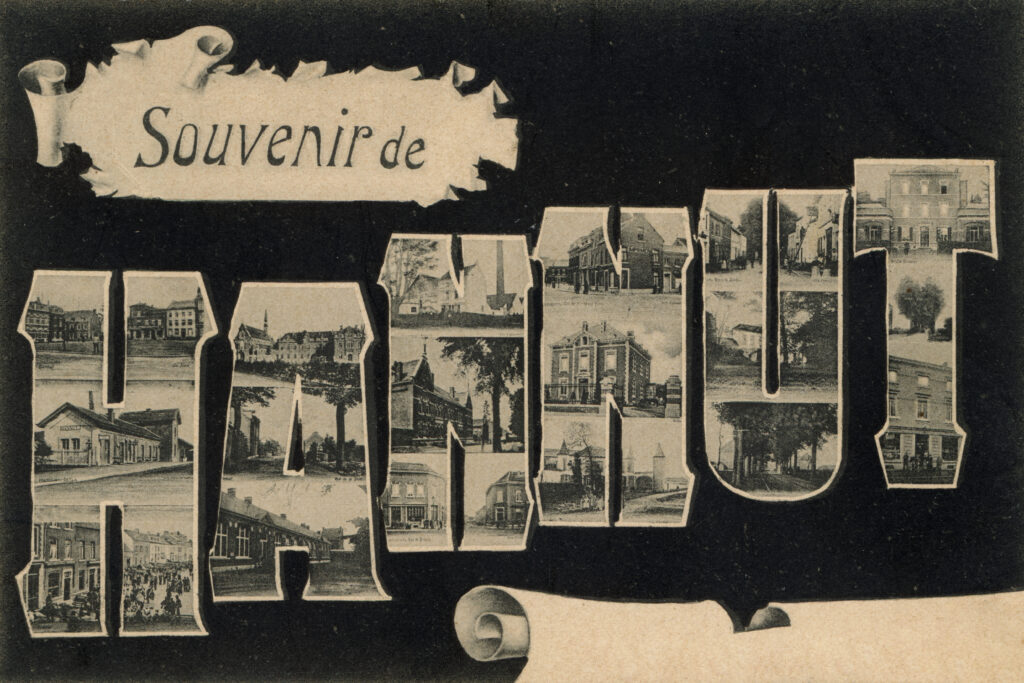 Souvenir de
HANNUT